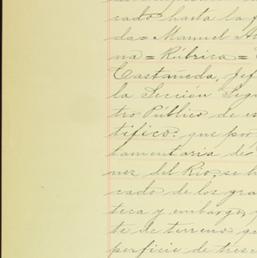 cado hasta la f
da = Manuel A
na = Rúbrica =
Castañeda, Jef
la Sección Segu
tro Público de es
tifico: que por
tamentaria de
nez del Rio, se h
cado de los gra
teca y embargo, y
te de terreno qu
perficie de tresc